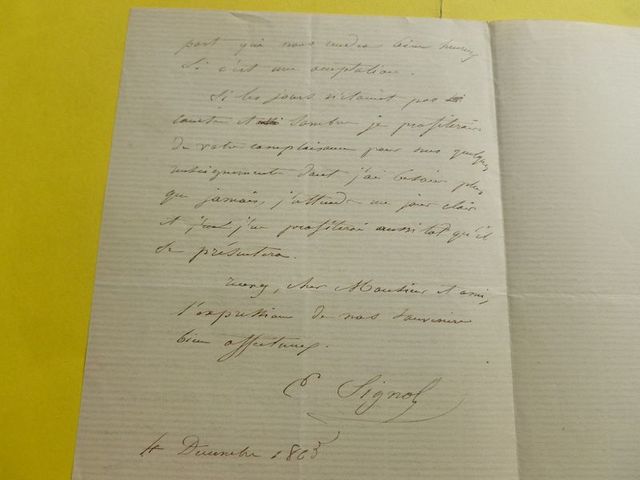 part qui nous rendra bien heureux
si c'est une acceptation.
Si les jours n'étaient pas si
courts et si sombres je profiterais
de votre complaisance pour mes quelques
renseignements dont j'ai besoin plus
que jamais, j'attends un jour clair
et j'en profiterai aussitôt qu'il
se présentera.
Recevez, cher Monsieur et ami,
l'expression de nos souvenirs
bien affectueux.
E Signol
4 Decembre